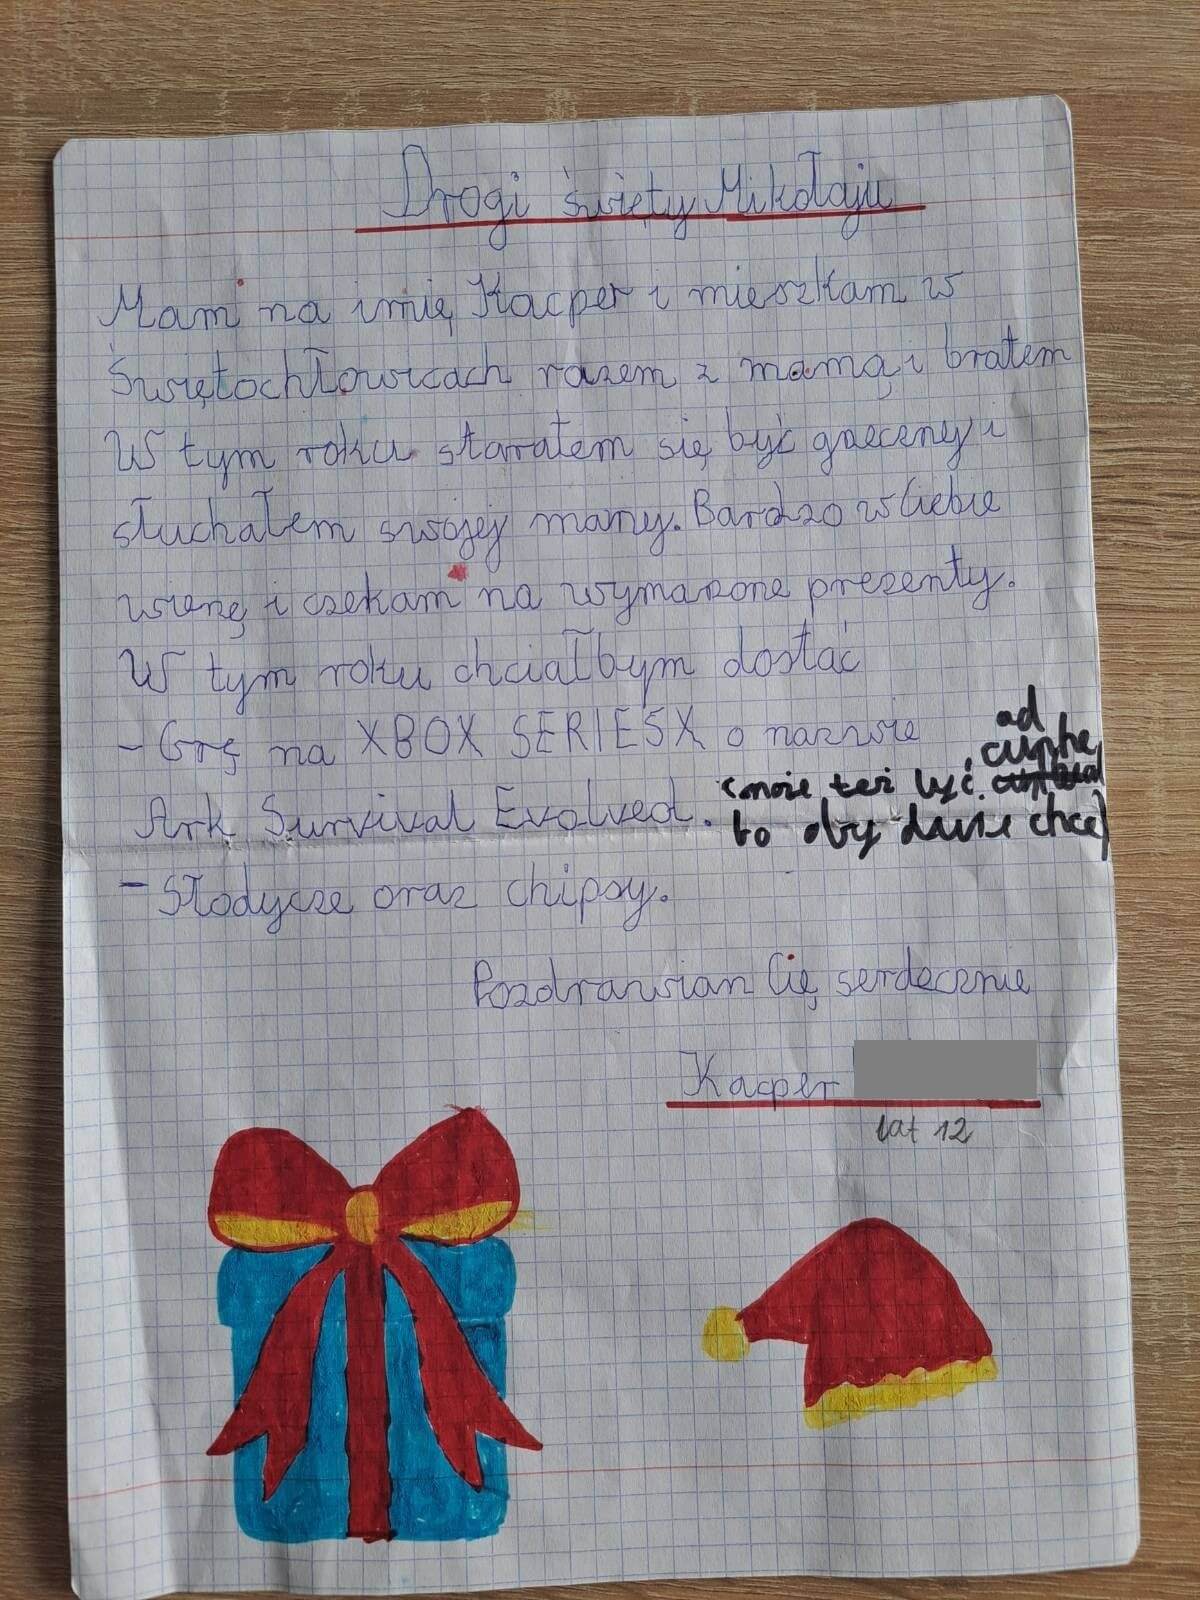 Drogi Święty Mikołaju
Mam na imię Kacper i mieszkam w
Świętochłowicach razem z mamą i bratem
W tym roku starałem się być grzeczny i
słuchałem swojej mamy. Bardzo w Ciebie
wierzę i czekam na wymarzone prezenty.
W tym roku chciałbym dostać
- Grę na XBOX SERIES X o nazwie
Ark Survival Evolved. (może też być
bo oby dwie chce)
- Słodycze oraz chipsy.
Pozdrawiam Cię serdecznie
Kacper
lat 12